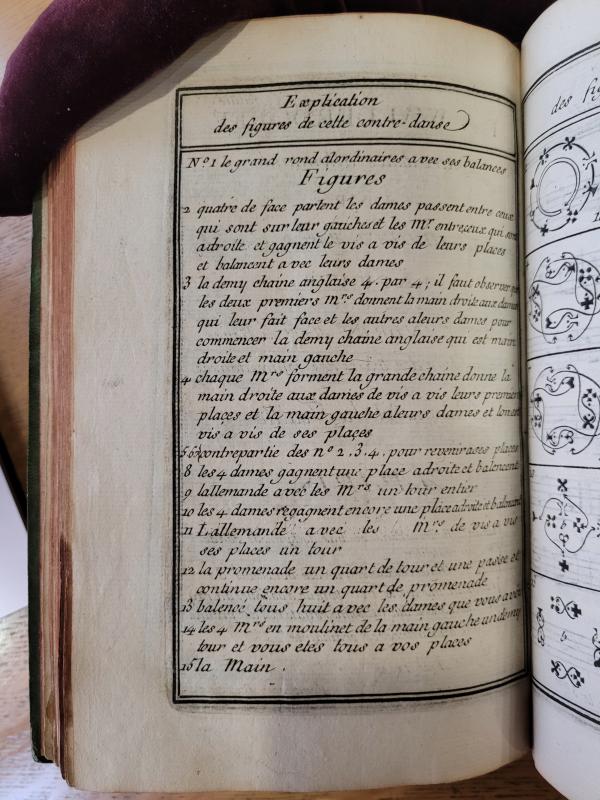 Explication
des figures de cette contre-danse
Nº. 1 le grand rond alordinaires avec ses balances
Figures
2 quatre de face partent les dames passent entre ceux
qui sont sur leur gauches et les Mrs entreceux qui sont
adroite et gagnent le vis a vis de leurs places
et balancent avec leurs dames
3 la demy chaine anglaise 4. par 4; il faut observer que
les deux premiers Mrs donnent la main droite aux dames
qui leur fait face et les autres aleurs dames pour
commencer la demy chaine anglaise qui est main
droite et main gauche
4 chaque Mrs forment la grande chaine donne la
main droite aux dames de vis a vis leurs premiers
places et la main gauche aleurs dames et
vis a vis de ses places
5 6 7 contrepartie des nº 2. 3. 4. pour revenir a ses places
8 les 4 dames gagnent une place adroite et balencent
9 lallemande avec les Mrs un tour entier
10 les 4 dames regagnent encore une place adroite et balancent
11 Lallemande avec les Mrs de vis a vis
ses places un tour
12 la promenade un quart de tour et une passe et
continue encore un quart de promenade
13 balencé tous huit avec les dames que vous avez
14 les 4 Mrs en moulinet de la main gauche un demy
tour et vous etes tous a vos places
15 la Main.
des fig